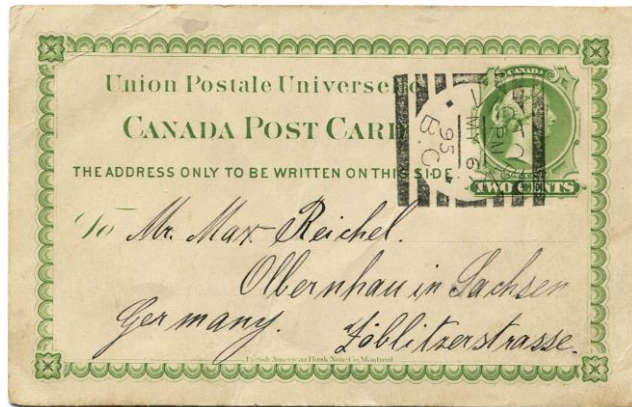 Union Postale Universelle
CANADA POST CARD
THE ADDRESS ONLY TO BE WRITTEN ON THIS SIDE
CANADA
TWO CENTS
95
B.C
To Mr. Max Reichel.
Olbernhau in Sachsen
Germany. Zöblitzerstrasse.
British American Bank Note Co. Montreal